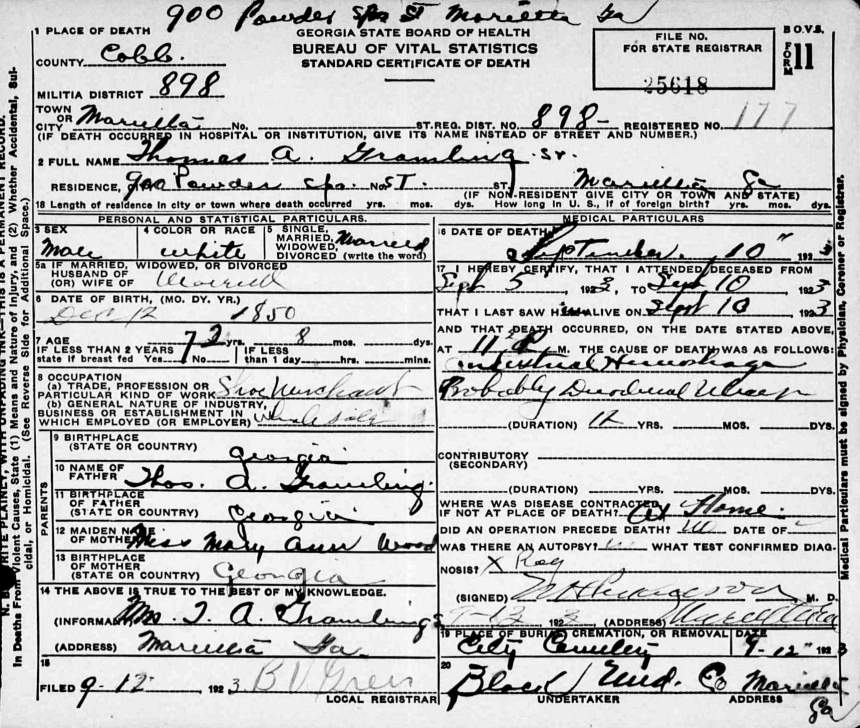 900 Powder Sps St Marietta Ga
1 PLACE OF DEATH
GEORGIA STATE BOARD OF HEALTH
BUREAU OF VITAL STATISTICS
STANDARD CERTIFICATE OF DEATH
FILE NO.
FOR STATE REGISTRAR
25618
B.O.V.S.
FORM 11
COUNTY Cobb.
MILITIA DISTRICT 898
TOWN OR CITY Marietta No. ST. REG. DIST. NO. 898- REGISTERED NO. 177
(IF DEATH OCCURRED IN HOSPITAL OR INSTITUTION, GIVE ITS NAME INSTEAD OF STREET AND NUMBER.)
2 FULL NAME Thomas A. Gramling Sr.
RESIDENCE, 900 Powder Sps. No. ST. ST. Marietta Ga
(IF NON-RESIDENT GIVE CITY OR TOWN AND STATE)
18 Length of residence in city or town where death occurred yrs. mos. dys. How long in U. S., if of foreign birth? yrs. mos. dys.
PERSONAL AND STATISTICAL PARTICULARS.
3 SEX Male
4 COLOR OR RACE white
5 SINGLE, MARRIED, WIDOWED, DIVORCED (write the word) Married
5a IF MARRIED, WIDOWED, OR DIVORCED
HUSBAND OF
(OR) WIFE OF Married
6 DATE OF BIRTH, (MO. DY. YR.)
Dec 12 1850
7 AGE 72 yrs. 8 mos. dys.
IF LESS THAN 2 YEARS state if breast fed Yes No
IF LESS than 1 day hrs. mins.
8 OCCUPATION
(a) TRADE, PROFESSION OR PARTICULAR KIND OF WORK Shoe Merchant
(b) GENERAL NATURE OF INDUSTRY, BUSINESS OR ESTABLISHMENT IN WHICH EMPLOYED (OR EMPLOYER) wholesale
PARENTS
9 BIRTHPLACE (STATE OR COUNTRY) Georgia
10 NAME OF FATHER Thos. A. Gramling.
11 BIRTHPLACE OF FATHER (STATE OR COUNTRY) Georgia
12 MAIDEN NAME OF MOTHER Miss Mary Ann Wood
13 BIRTHPLACE OF MOTHER (STATE OR COUNTRY) Georgia
14 THE ABOVE IS TRUE TO THE BEST OF MY KNOWLEDGE.
(INFORMANT) Mrs. T. A. Gramling
(ADDRESS) Marietta Ga.
15
FILED 9-12 1923. LOCAL REGISTRAR
MEDICAL PARTICULARS
16 DATE OF DEATH
September 10" 1923
17 I HEREBY CERTIFY, THAT I ATTENDED DECEASED FROM
Sept 5 1923, TO Sept 10 1923
THAT I LAST SAW HIM ALIVE ON Sept 10 1923
AND THAT DEATH OCCURRED, ON THE DATE STATED ABOVE,
AT 11 P M. THE CAUSE OF DEATH WAS AS FOLLOWS:
Intestinal Hemorrhage
Probably Duodenal Ulcer
(DURATION) 12 YRS. MOS. DYS.
CONTRIBUTORY
(SECONDARY)
(DURATION) YRS. MOS. DYS.
WHERE WAS DISEASE CONTRACTED
IF NOT AT PLACE OF DEATH? At Home.
DID AN OPERATION PRECEDE DEATH? DATE OF
WAS THERE AN AUTOPSY? WHAT TEST CONFIRMED DIAG-
NOSIS? X Ray
(SIGNED) M. D.
9-12 1923 (ADDRESS) Marietta Ga
19 PLACE OF BURIAL, CREMATION, OR REMOVAL DATE
City Cemetery 9-12" 1923
20
Black Und. Co Marietta Ga
UNDERTAKER ADDRESS
N. B.—WRITE PLAINLY, WITH UNFADING INK—THIS IS A PERMANENT RECORD.
In Deaths From Violent Causes, State (1) Means and Nature of Injury, and (2) Whether Accidental, Suicidal, or Homicidal. (See Reverse Side for Additional Space.)
Medical Particulars must be signed by Physician, Coroner or Registrar.